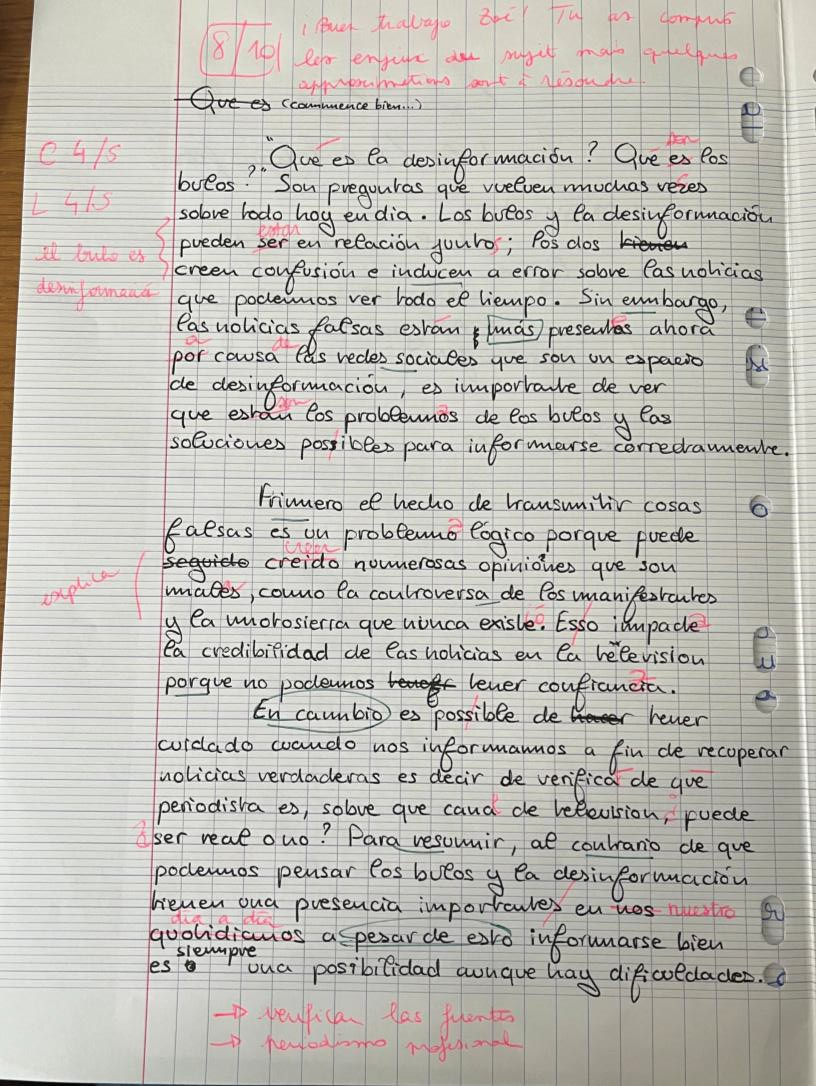 ¡Buen trabajo Zoé! Tu as compris
8/10 les enjeux du sujet mais quelques
approximations sont à résoudre.
Que es (commence bien...)
C 4/5
L 4/5
"Que es la desinformación ? Que es los
son
bulos ?" Son preguntas que vuelven muchas vezes
sobre todo hoy en dia. Los bulos y la desinformación
estar
pueden ser en relación juntos ; los dos tienen
el bulo es
desinformació
creen confusión e inducen a error sobre las noticias
que podemos ver todo el tiempo. Sin embargo,
las noticias falsas están más presentes ahora
a de
por causa las redes sociales que son un espacio
de desinformación, es importante de ver
son
que están los problemas de los bulos y las
soluciones possibles para informarse corredramente.
Primero el hecho de transmitir cosas
falsas es un problemo lógico porque puede
crear
seguido creido numerosas opiniónes que son
explica
males, como la controversa de los manifestantes
y la motosierra que nunca existe. Esso impacte
la credibilidad de las noticias en la television
porque no podemos tener confiancia.
En cambio es possible de hacer tener
cuidado cuando nos informamos a fin de recuperar
noticias verdaderas es decir de verificar de que
periodista es, sobre que canal de television, puede
¿ser real o no ? Para resumir, al contrario de que
podemos pensar los bulos y la desinformación
tienen una presencia importantes en nos nuestro
dia a dia
quotidianos a pesar de esto informarse bien
siempre
es una posibilidad aunque hay dificuldades.
→ verifican las fuentes
→ periodismo profesional